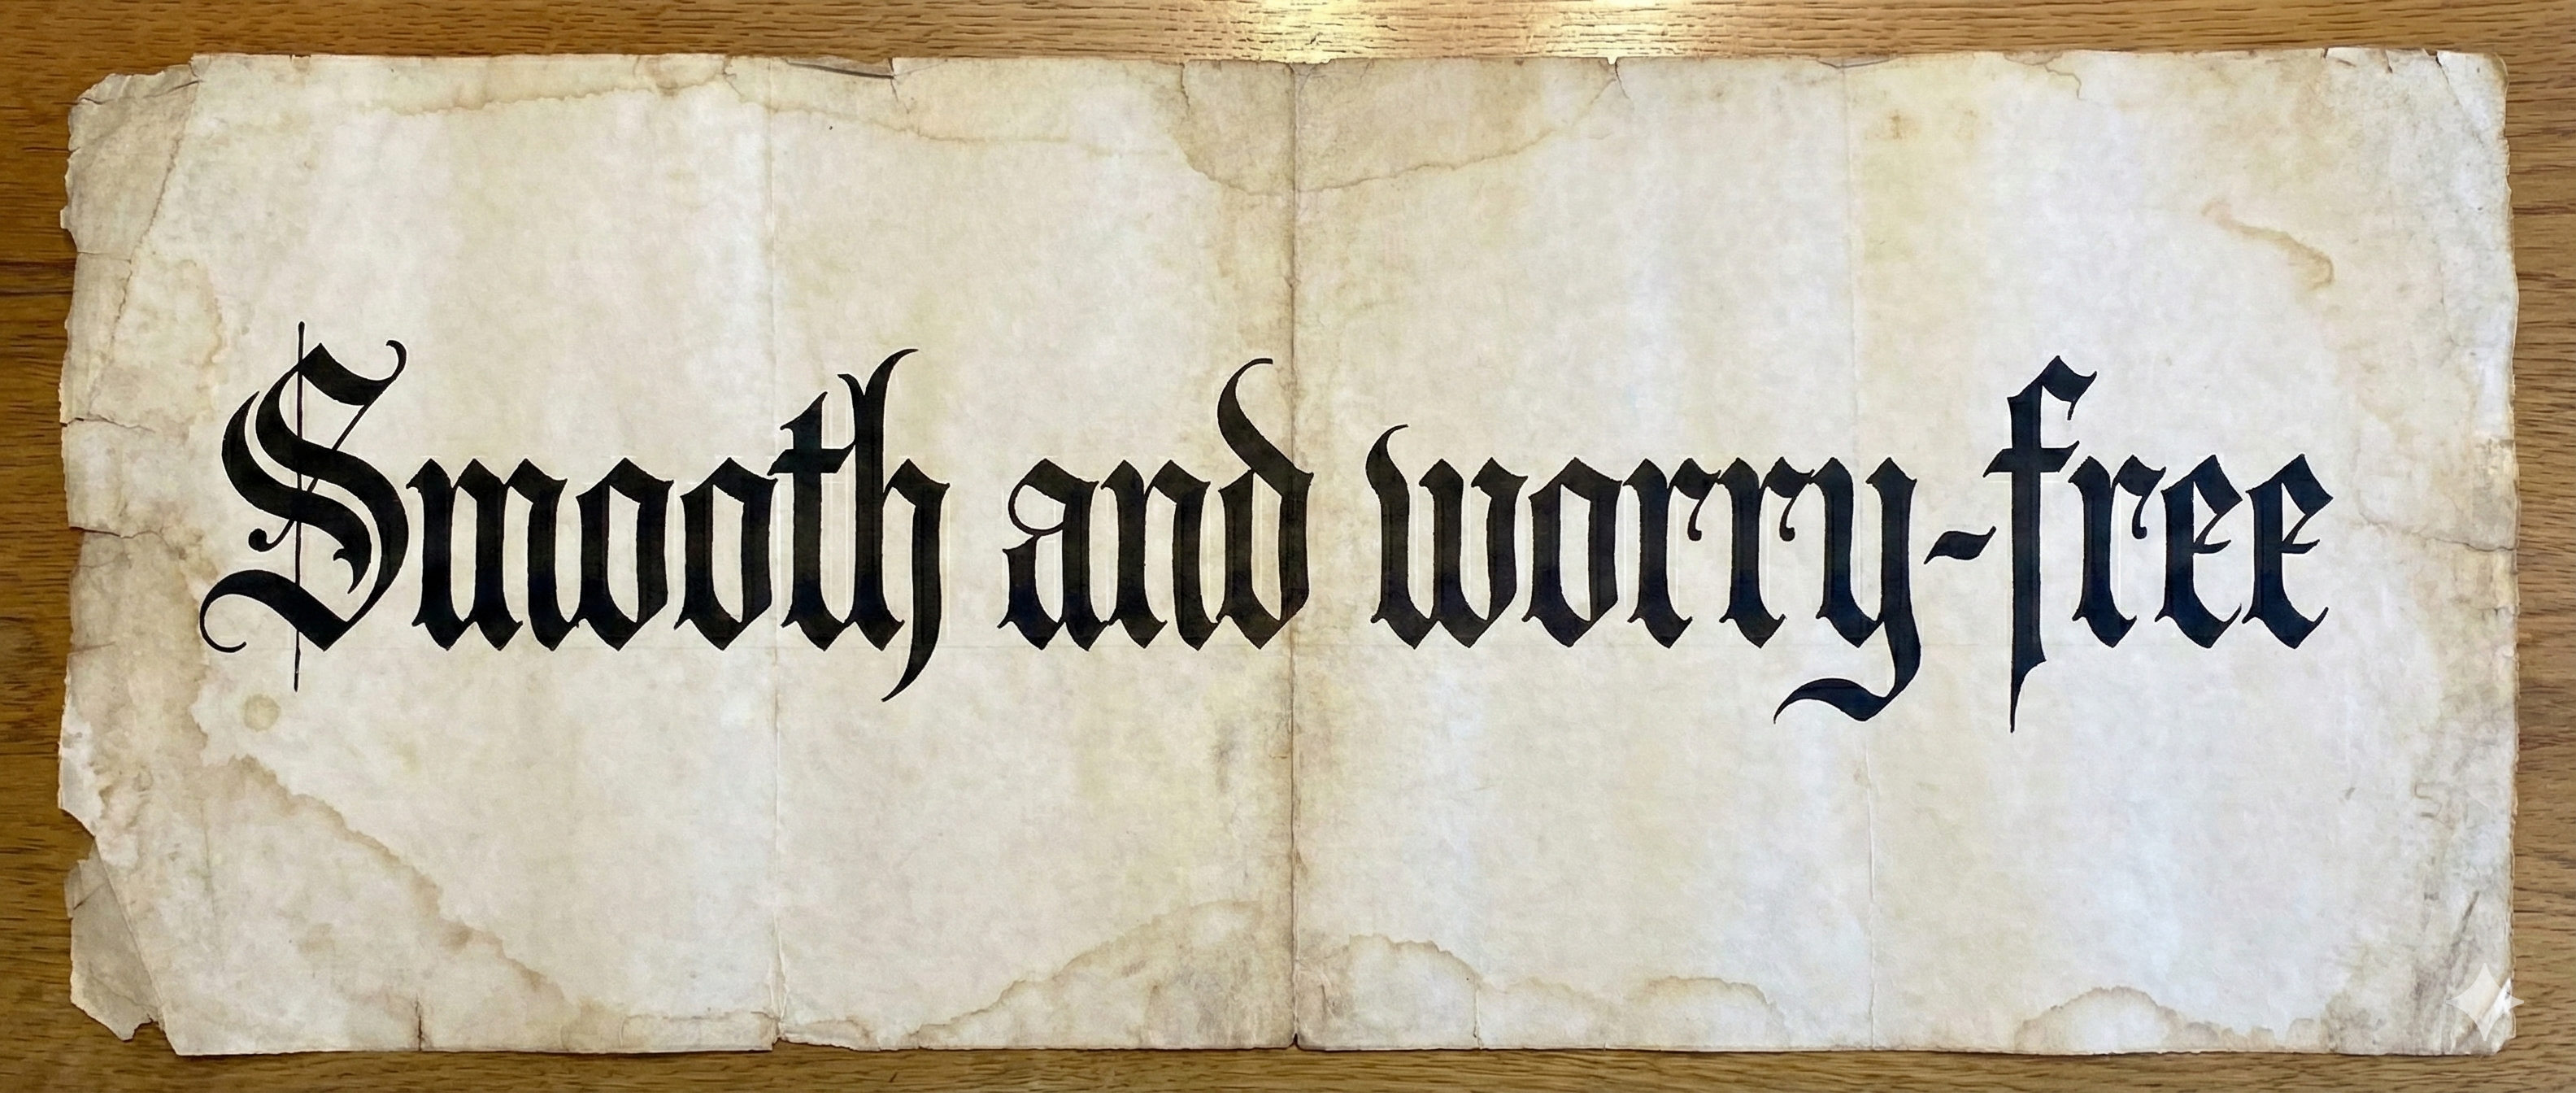 Smooth and worry-free